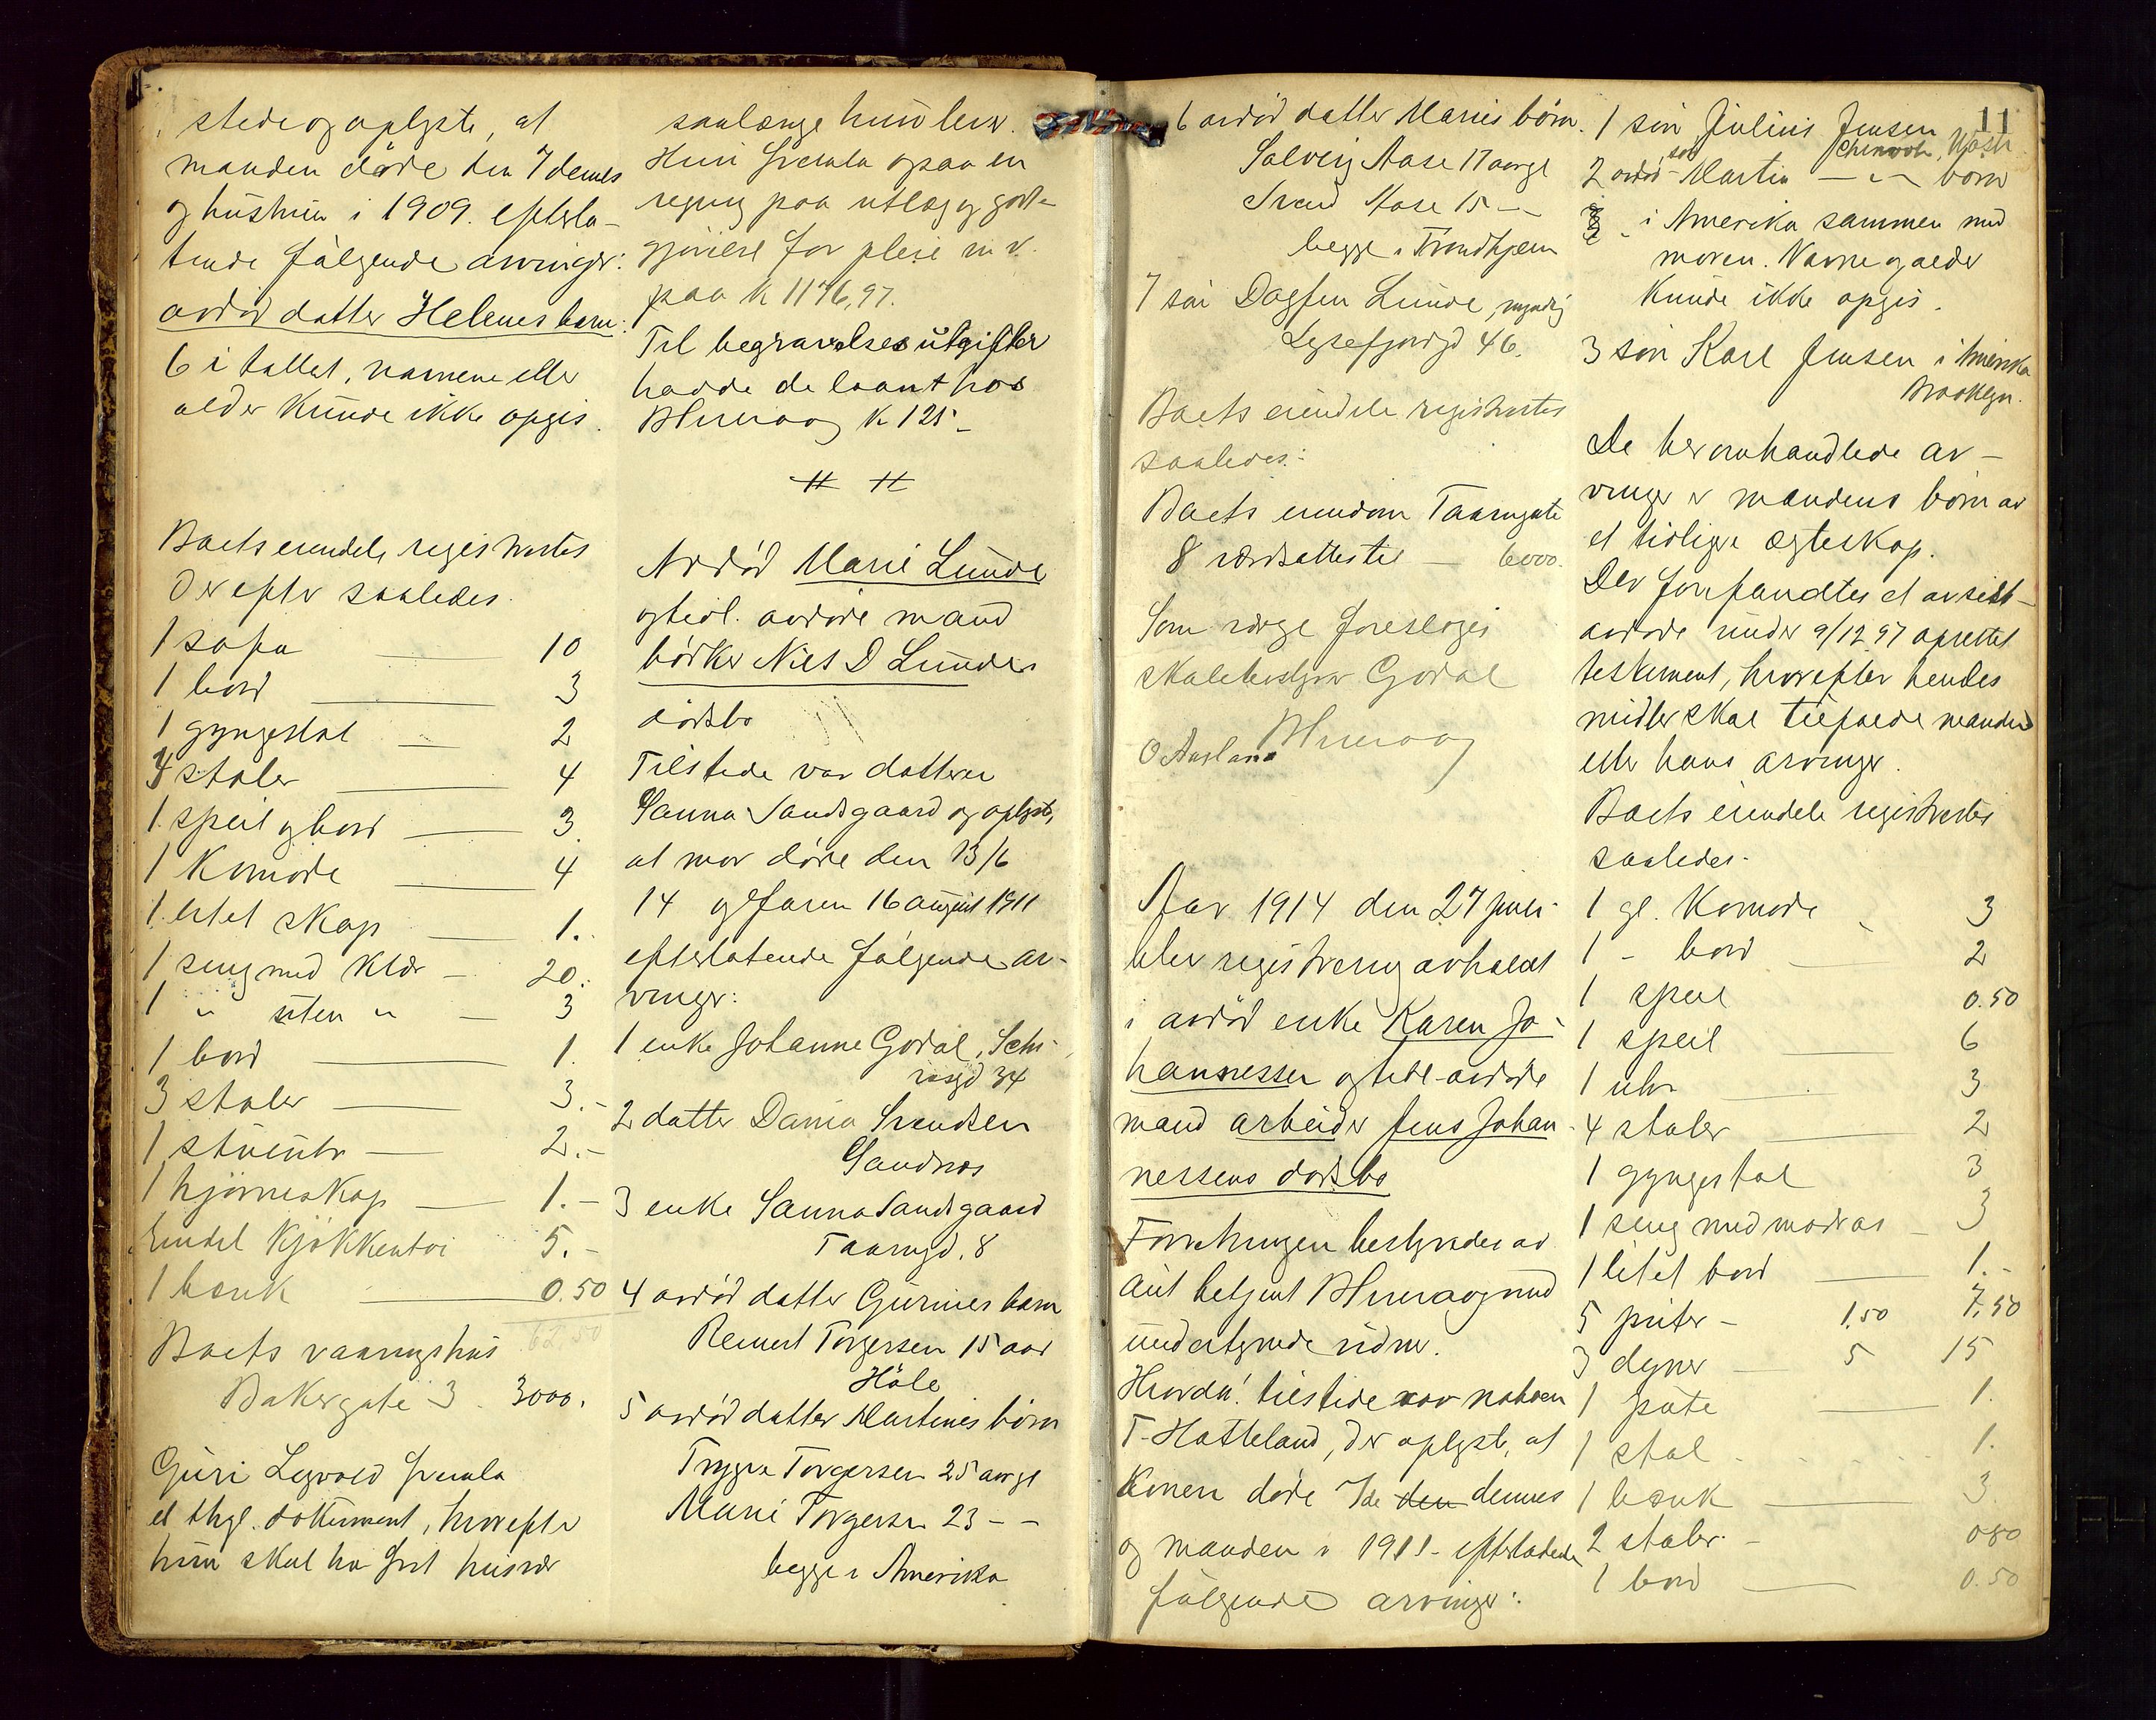 stede og oplyste, at
manden døde den 7 dennes
og hustruen i 1909. efterla-
tende følgende arvinger:
avdød datter Helenes barn:
6 i tallet, navnene eller
alder kunde ikke opgis.
Boets eiendele registrertes
derefter saaledes.
1 sofa 10
1 bord 3
1 gyngestol 2
4 stoler 4
1 speil og bord 3.
1 Komode 4
1 litet skap 1.
1 seng med klær 20.
1 " uten " 3
1 bord 1.
3 stoler 3.-
1 stueuhr 2.-
1 hjørneskap 1.-
Endel kjøkkentøi 5.-
1 bænk 0.50
62.50
Boets vaaningshus
Bakergate 3. 3000.
Guri Legvold fremla
et thgl. dokument, hvorefter
hun skal ha frit husvær
saalænge hun lever.
Hun fremla ogsaa en
regning paa utlæg og godt-
gjørelse for pleie m.v.
paa K 1176,97.
Til begravelsesutgifter
hadde de laant hos
K 125-
Avdød Marie Lunde
og tidl. avdøde mand
bødker Niels D Lundes
dødsbo
Tilstede var datteren
Sanna Sandsgaard og oplyste,
at mor døde den 13/6
14 og faren 16 august 1911
efterlatende følgende ar-
vinger:
1 enke Johanne Godal,
34
2 datter Dania Svendsen
Sandnes
3 enke Sanna Sandsgaard
Taarngd. 8
4 avdød datter Gurines barn
Reinert Torgersen 15 aar
Høle
5 avdød datter Martines børn
Trygve Torgersen 25 aar gl
Marie Torgersen 23 - -
begge i Amerika
6 avdød datter Maries børn.
Solveig Aase 17 aar gl
Svend Aase 15 -
begge i Trondhjem
7 søn Dagfin Lunde, myndig
Lysefjordgd 46.
Boets eiendele registrertes
saaledes:
Boets eiendom Taarngate
8 værdsattes til — 6000.
Som værge foresloges
skolebestyrer Godal
Aar 1914 den 27 juli
blev registrering avholdt
i avdød enke Karen Jo-
hannessen og tidl. avdøde
mand arbeider Jens Johan-
nessens dødsbo
Forretningen bestyredes av
med
undertegnede vidner.
Hvorda! tilstede var naboen
T. Hatteland, der oplyste, at
Konen døde 7de den dennes
og manden i 1911 - efterlatende
følgende arvinger:
11
1 søn Julius Jensen
Chinook, Wash
2 avdød søn Martin - " - børn
i Amerika sammen med
moren. Navne og alder
kunde ikke opgis.
3 søn Karl Jensen i Amerika
Brooklyn.
De her omhandlede ar-
vinger er mandens børn av
et tidligere ægteskap.
Der forefandtes et av sidst-
avdøde under 9/12 97 oprettet
testament, hvorefter hendes
midler skal tilfalde manden
eller hans arvinger.
Boets eiendele registrertes
saaledes.
1 gl. Komode 3
1 - bord 2
1 speil 0.50
1 speil 6
1 uhr 3
4 stoler 2
1 gyngestol 3
1 seng med madras 3
1 litet bord 1.-
5 puter - 1,50 7,50
3 dyner 5 15
1 pute 1.
1 stol 1.
1 bænk 3
2 stoler 0 80
1 bord 0.50